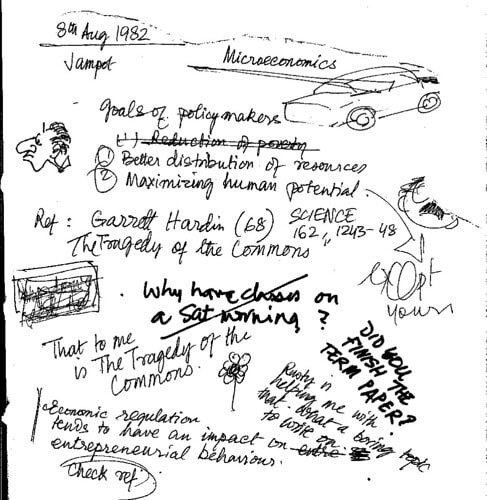 8th Aug 1982
Jampot
Microeconomics
Goals of policymakers
(1) Reduction of poverty
1 Better distribution of resources
2 Maximizing human potential.
Ref: Garrett Hardin (68) SCIENCE
162, 1243-48
The Tragedy of the Commons
except
yours
. Why have classes on
a Sat morning?
That to me
is The Tragedy of the
Commons.
DID YOU
FINISH THE
TERM PAPER?
Rusty is
helping me with
that. What a boring topic
to write on.
Economic regulation
tends to have an impact on entre
entrepreneurial behaviour.
Check ref.